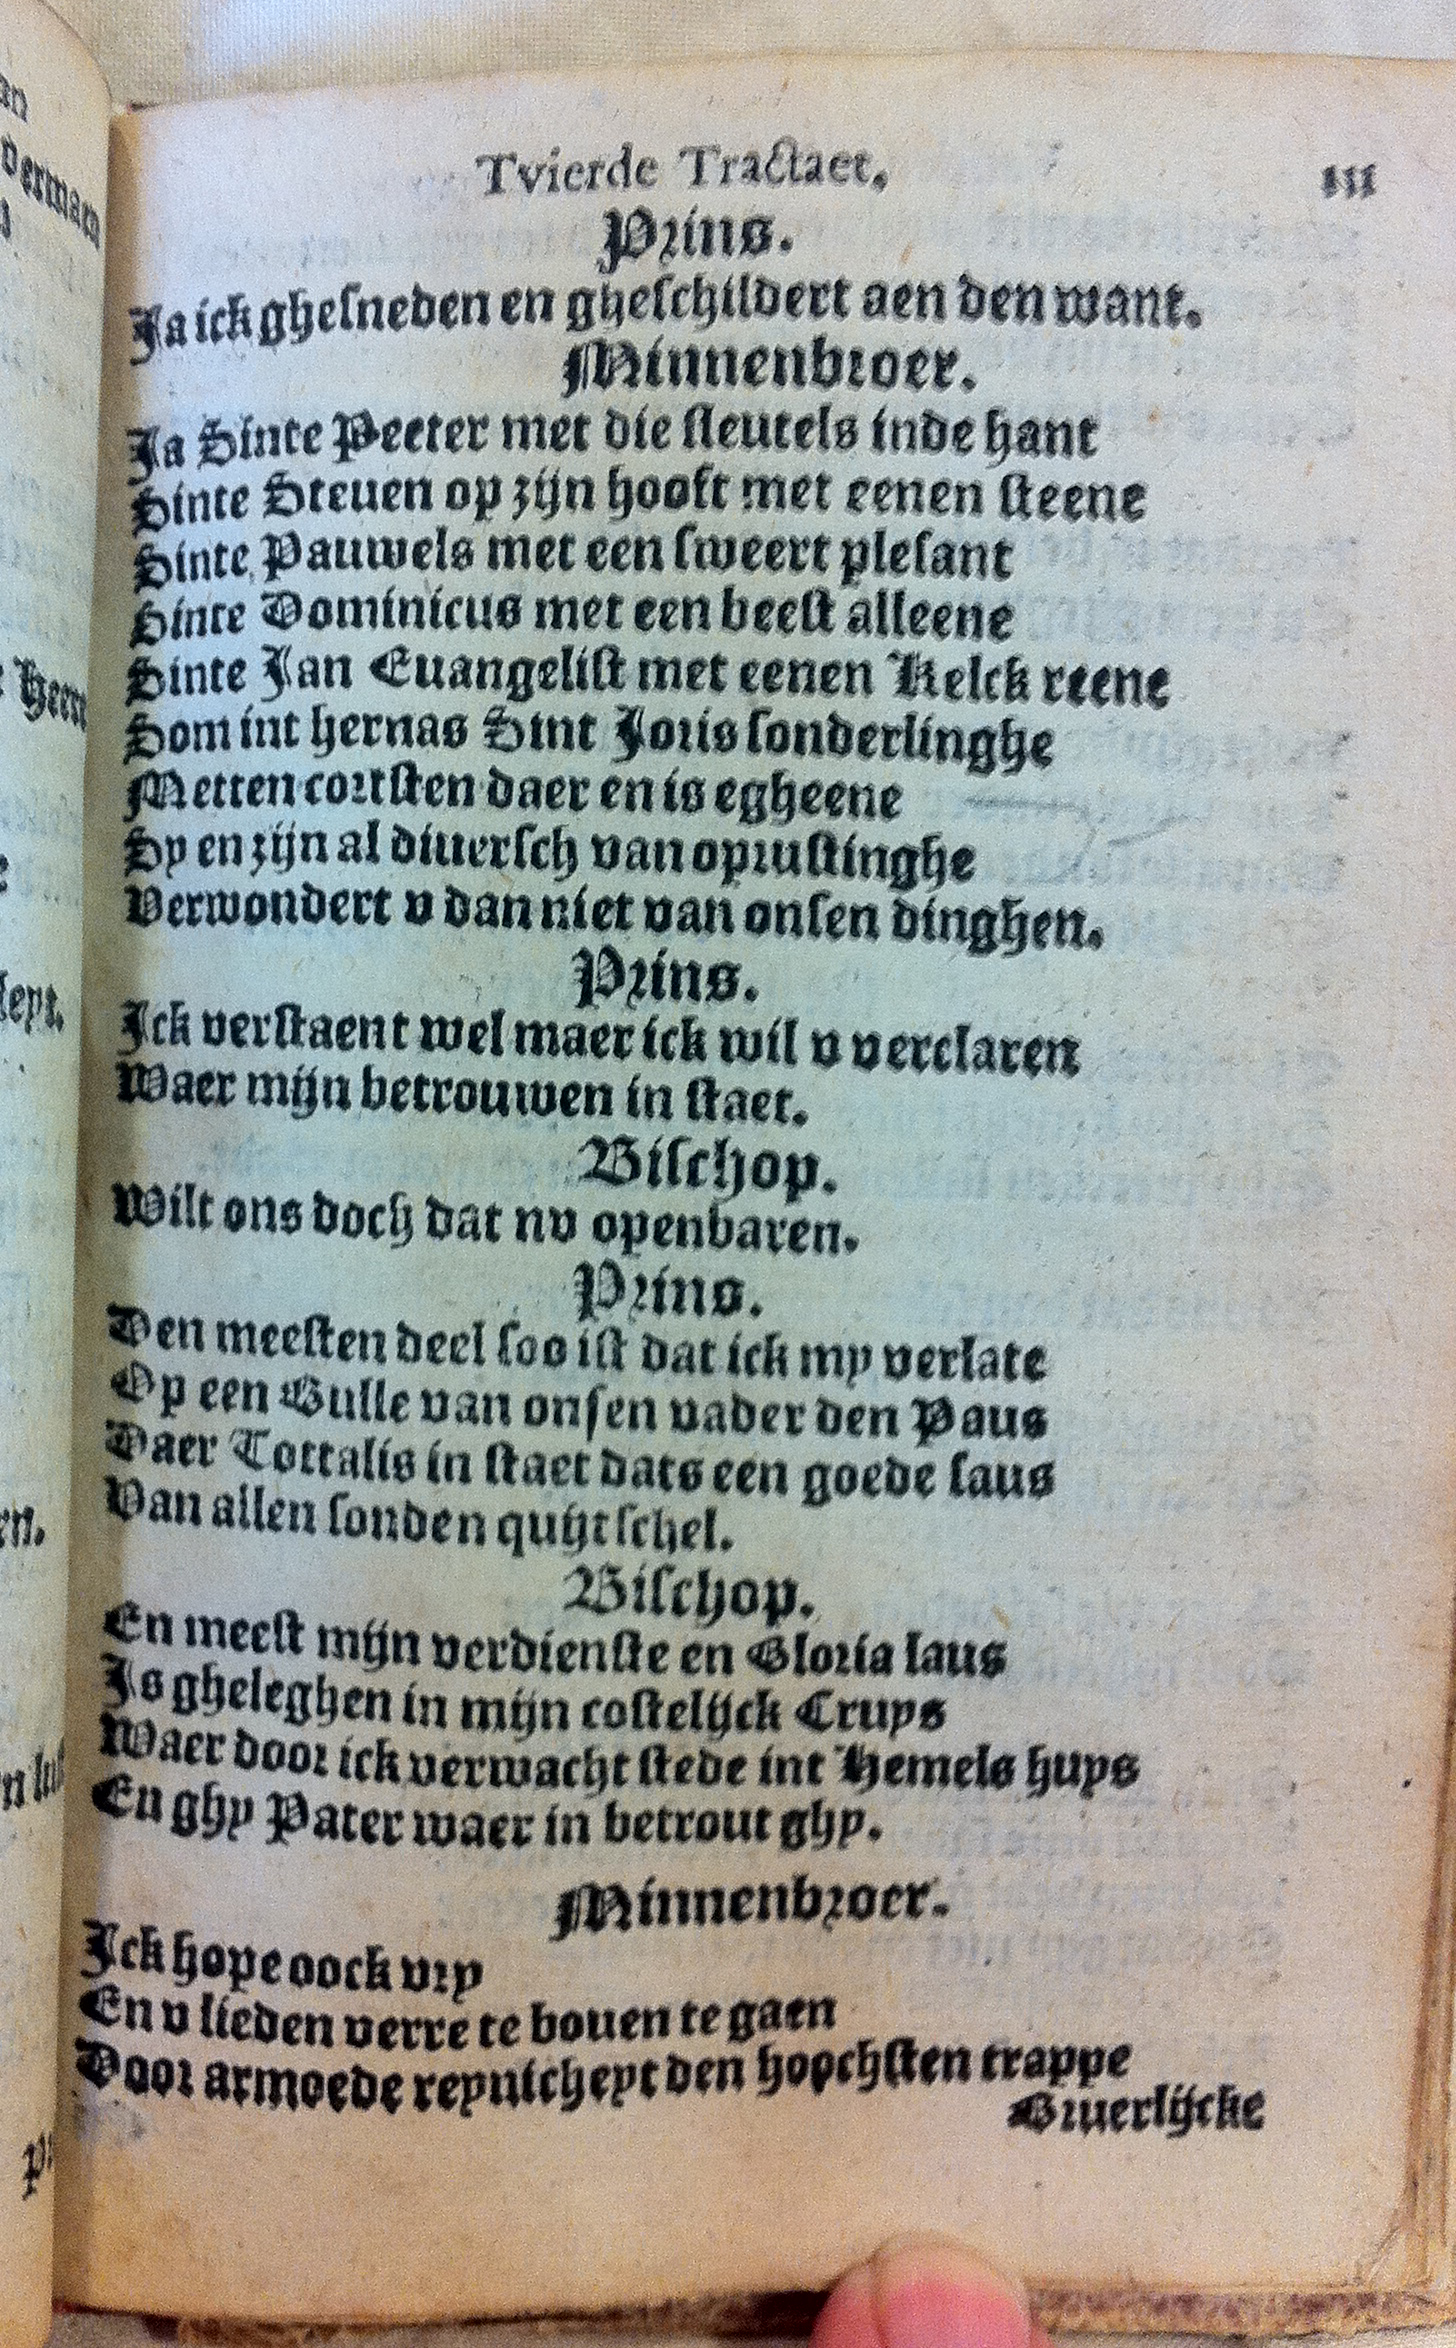 Tvierde Tractaet. 111
Prins.
Ja ick ghesneden en gheschildert aen den want.
Minnenbroer.
Ja Sinte Peeter met die sleutels inde hant
Sinte Steuen op zijn hooft met eenen steene
Sinte Pauwels met een sweert plesant
Sinte Dominicus met een beest alleene
Sinte Jan Euangelist met eenen Kelck reene
Som int hernas Sint Joris sonderlinghe
Metten cortsten daer en is egheene
Sy en zijn al diuersch van oprustinghe
Verwondert v dan niet van onsen dinghen.
Prins.
Ick verstaent wel maer ick wil v verclaren
Waer mijn betrouwen in staet.
Bisschop.
Wilt ons doch dat nv openbaren.
Prins.
Den meesten deel soo ist dat ick my verlate
Op een Bulle van onsen vader den Paus
Daer Tottalis in staet dats een goede saus
Van allen sonden quijtschel.
Bischop.
En meest mijn verdienste en Gloria laus
Is gheleghen in mijn costelijck Cruys
Waer door ick verwacht stede int Hemels huys
En ghy Pater waer in betrout ghy.
Minnenbroer.
Ick hope oock vry
En v lieden verre te bouen te gaen
Door armoede reynicheyt den hoochsten trappe
Gruerlijcke